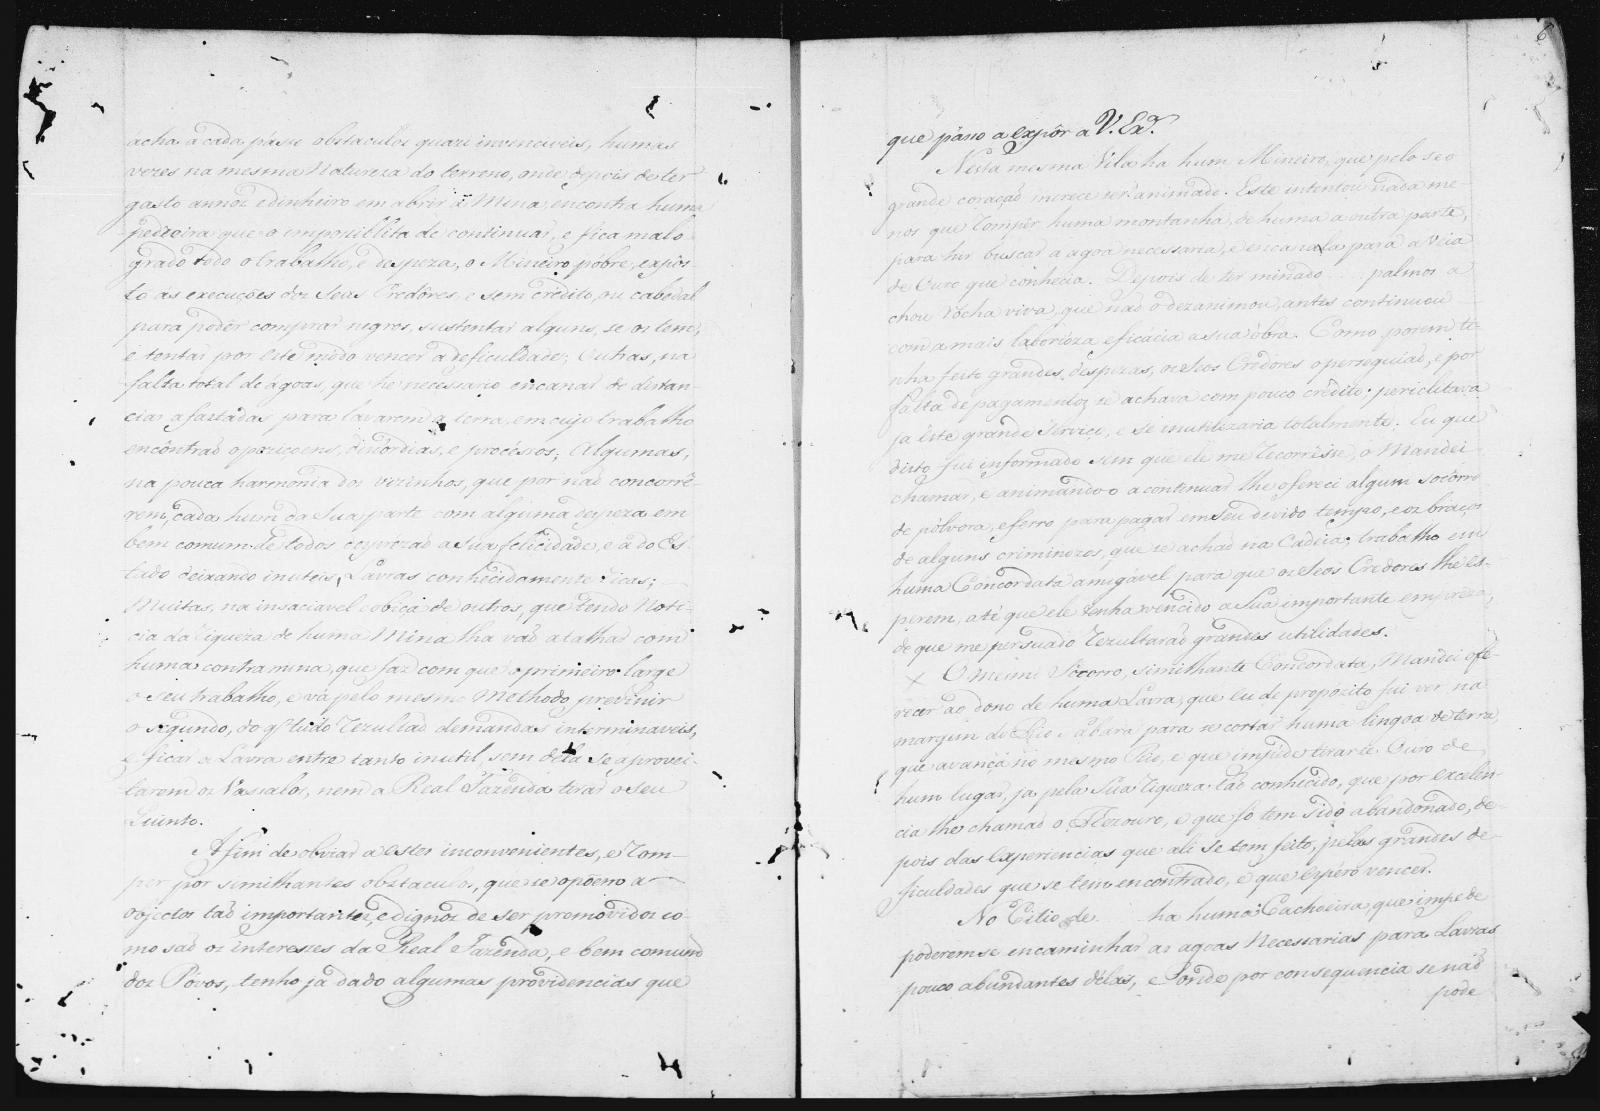 acha a cada pásso obstaculos quazi invenciveis, humas
vezes na mesma Natureza do terreno, onde depois de ter
gasto annoz e dinheiro em abrir a Mina, encontra huma
pedreira que o impossiblita de continuar, e fica malo-
grado todo o trabalho, e despeza, o Mineiro pobre, expós-
to ás execuções doz Seus Credôres, e sem crédito, ou cabedal
para podêr comprar negros, sustentar alguns, se os tem,
e tentar por este módo vencer a deficuldade; Outras, na
falta total de ágoas, que hé necessario encanar de distan-
cias afastadas para lavarem a terra, em cujo trabalho
encontraõ opozicoens, discórdias, e procéssos; Algumas,
na pouca harmonia dos vizinhos, que por naõ concorrê-
rem, cada hum da Sua parte com alguma despeza em
bem comum de todos desprezaõ a sua felicidade, e a do Es-
tado deixando inuteis, Lavras conhecidamente ricas;
Muitas, na insaciavel cobiça de outros, que tendo Noti-
cia da riqueza de huma Mina lha vaõ atalhar com
huma contramina, que faz com que o primeiro large
o seu trabalho, e vá pelo mesmo Methodo prevenir
o segundo, do q. tudo rezultaõ demandas interminaveis,
e ficar a Lavra entre tanto inutil, sem dela Se aprovei-
tarem oz Vassalos, nem a Real Fazenda tirar o seu
Quinto.
Afim de obviar a estes inconvenientes, e rom-
per por similhantes obstaculos, que se opõem a
objectos taõ importantes, e dignoz de ser promovidoz co-
mo saõ oz interesses da Real Fazenda, e bem comum
doz Póvos, tenho já dado algumas providencias que
6
que pásso a expôr a V. Exa.
Nesta mesma Vila ha hum Mineiro, que pelo seo
grande coraçaõ merece ser animado. Este intentou nada me-
nos que rompêr huma montanha, de huma a outra parte,
para hir buscar a agoa necessaria, e encanala para a Veia
de Ouro que conhecia. Depois de ter minado palmos a
chou rócha viva, que naõ o dezanimou, antes continuou
com a mais laborióza eficácia a sua óbra. Como porem ti-
nha feito grandes despezas, os Seos Credôres o perseguiaõ, e por
falta de pagamentoz se achava com pouco crédito: periclitava
já este grande Serviço, e se inutilizaria totalmente. Eu que
disto fui informado sem que ele me recorrêsse, o Mandei
chamar, e animando-o a continuar lhe ofereci algum socôrro
de pólvora, e ferro para pagar em seu devido tempo, e oz braços
de alguns criminozos, que se achaõ na Cadêia; trabalho em
huma Concordata amigável para que oz Seós Credores lhe es-
perem, até que ele tenha vencido a Sua importante emprêza,
de que me persuado rezultaraõ grandes utilidades.
O mesmo Socorro, similhante Concordata, Mandei ofe-
recer ao dono de huma Lavra, que Eu de propózito fui ver, na
margem do Rio Sabará para se cortar huma lingoa de terra,
que avança no mesmo Rio, e que impéde tirarse Ouro de
hum lugar, ja pela Sua riqueza taõ conhecido, que por excelen-
cia lhe chamaõ o Thezouro, e que só tem Sido abandonado, de-
pois das experiencias que ali se tem feito, pelas grandes de-
ficuldades que se tem encontrado, e que espéro vencer.
No Citio de ha huma Cachoeira, que impede
poderem-se encaminhar as agoas necessarias para Lavras
pouco abundantes délas, e onde por consequencia se naõ
pode